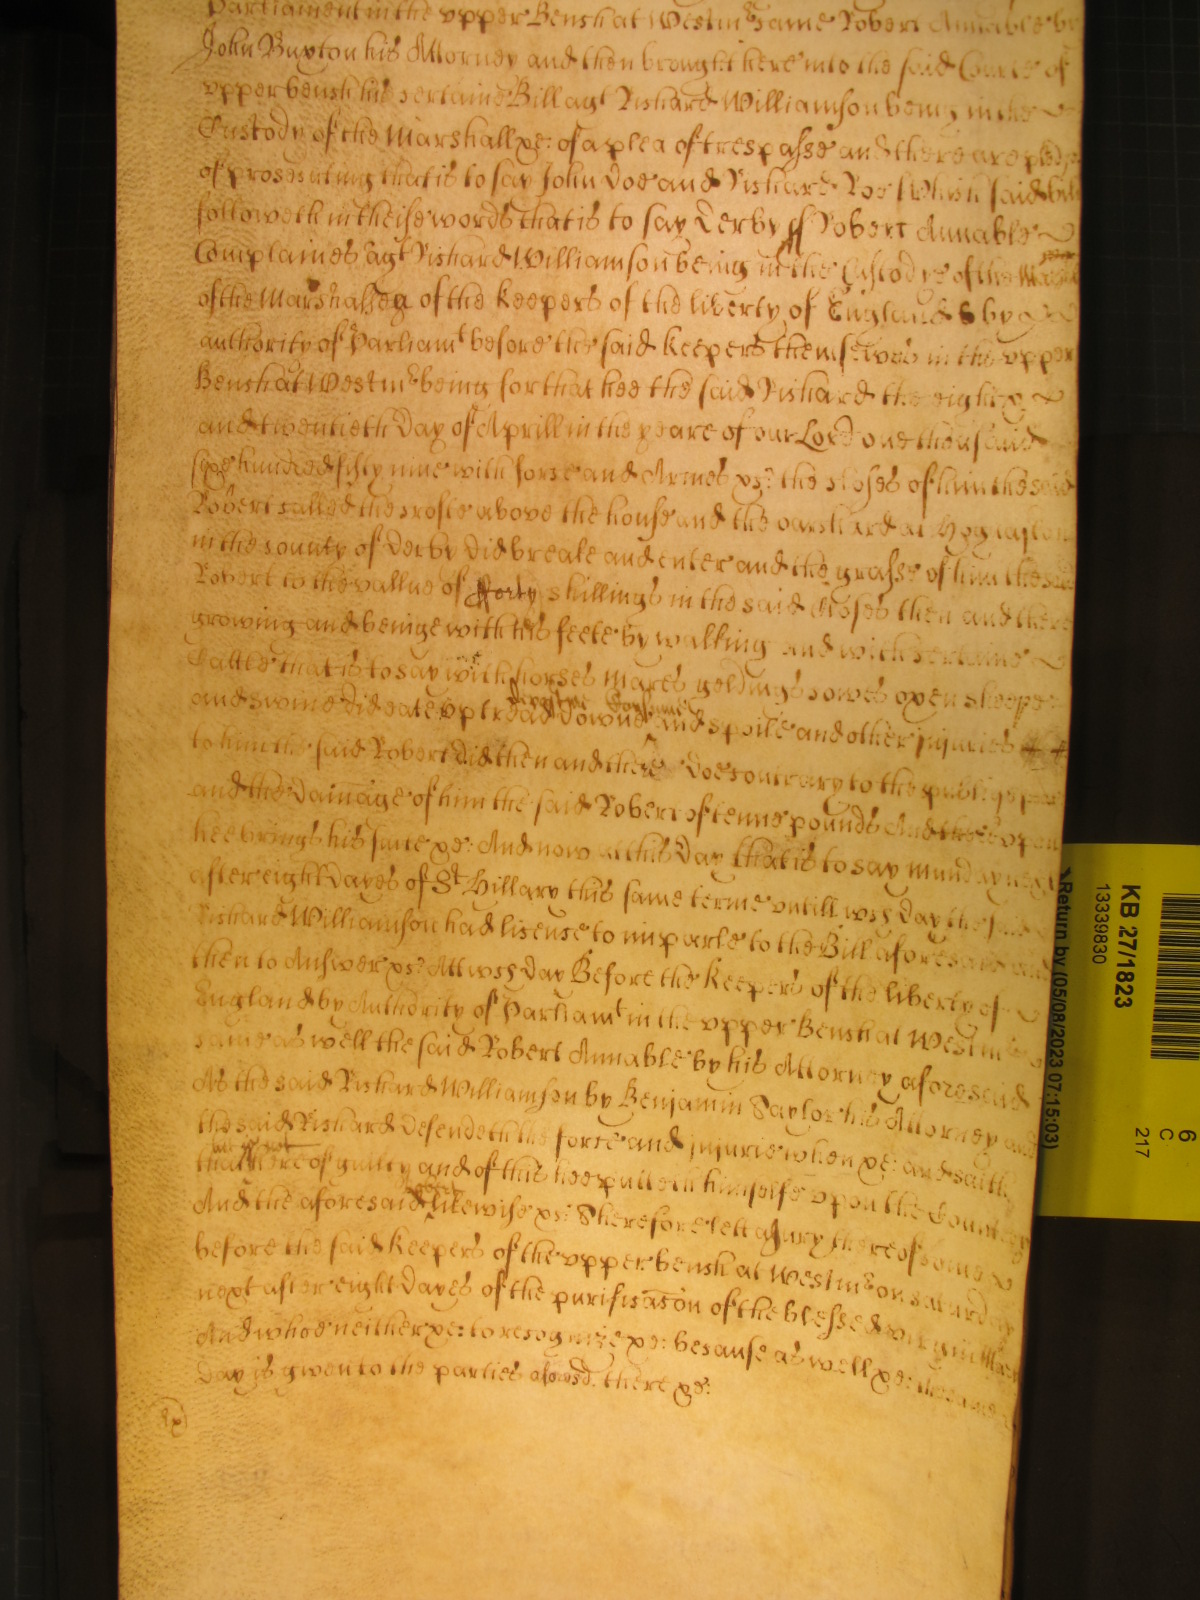 Parliament in the vpper Bench at Westmr came Robert Annable by
John Buxton his Attorney and then brought here into the said Courte of
vpper bench his certaine Bill agt Richard Williamson being in the
Custody of the Marshall &c: of a plea of trespasse and there are pledges
of prosecuting that is to say John Doe and Richard Roe Which said bill
followeth in theise words that is to say Derby ss Robert Annable
Complaines agt Richard Williamson being in the Custodye of the
of the Marshalsea of the Keepers of the liberty of England by
authority of Parliamt before the said Keepers themselves in the vpper
Bench at Westmr being for that hee the said Richard the eight
and twentieth day of Aprill in the yeare of our Lord one thousand
sixe hundred fifty nine with force and Armes &c: the closes of him the said
Robert called the crofte above the house and the oarchard at
in the county of Derby did breake and enter and the grasse of him the said
Robert to the vallue of fforty shillings in the said closes then and there
growing and beinge with his feete by walking and with certaine
Cattle that is to say with horses mares geldings cowes oxen sheepe
and swine did eate vp tread downe and spoile and other injuries
to him the said Robert did then and there doe contrary to the publiq
and the damage of him the said Robert of tenne pounds And therevpon
hee brings his suite &c: And now at this day that is to say munday next
after eight dayes of St Hillary this same terme vntill wch day the said
Richard Williamson had licence to imparle to the Bill aforesaid and
then to Answer &c: At wch day Before the Keepers of the liberty of
England by Authority of Parliamt in the vpper Bench at Westmr
came as well the said Robert Annable by his Attorney aforesaid
As the said Richard Williamson by Benjamin Saylor his Attorney and
the said Richard defendeth the force and injurie when &c: and saith
that hee is not
thereof guilty and of this hee putteth himselfe vpon the Countrey
And the aforesaid Robert likewise &c: Therefore lett a Jury thereof come
before the said Keepers of the vpper bench at Westmr on saturday
next after eight dayes of the purificacon of the blessed virgin Mary
And whoe neither &c: to recognize &c: because as well &c: the same
day is given to the parties aforesd. there &c:
KB 27/1823
13339830
Return by (05/08/2023 07:15:03)
6
C
217